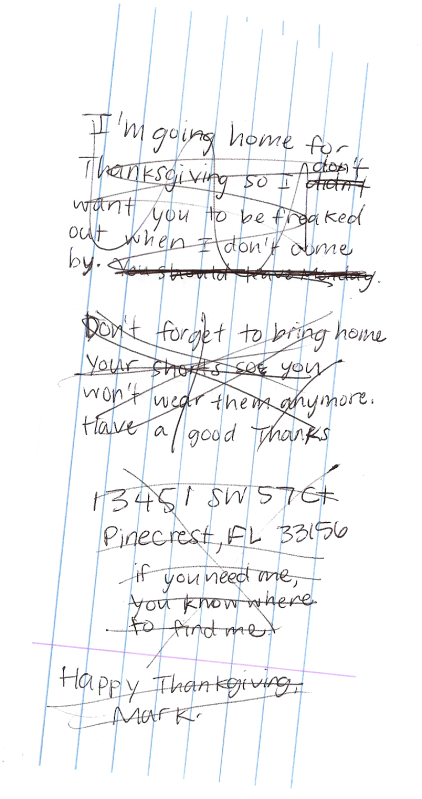 I'm going home for
don't
Thanksgiving so I didn't
want you to be freaked
out when I don't come
by. You should leave Monday.
Don't forget to bring home
your shorts see you
won't wear them anymore.
Have a good Thanks
13451 SW 57 Ct
Pinecrest, FL 33156
if you need me,
you know where
to find me.
Happy Thankgiving,
Mark.